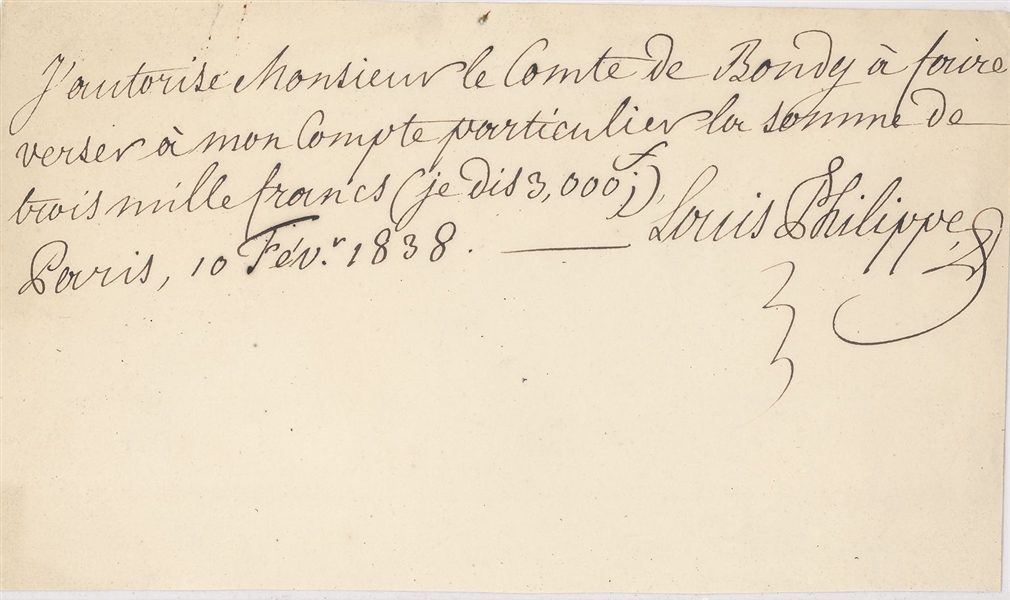 J'autorise Monsieur le Comte de Bondy à faire
verser à mon Compte particulier la somme de
trois mille francs (je dis 3,000 f;)
Paris, 10 Févr. 1838. — Louis Philippe